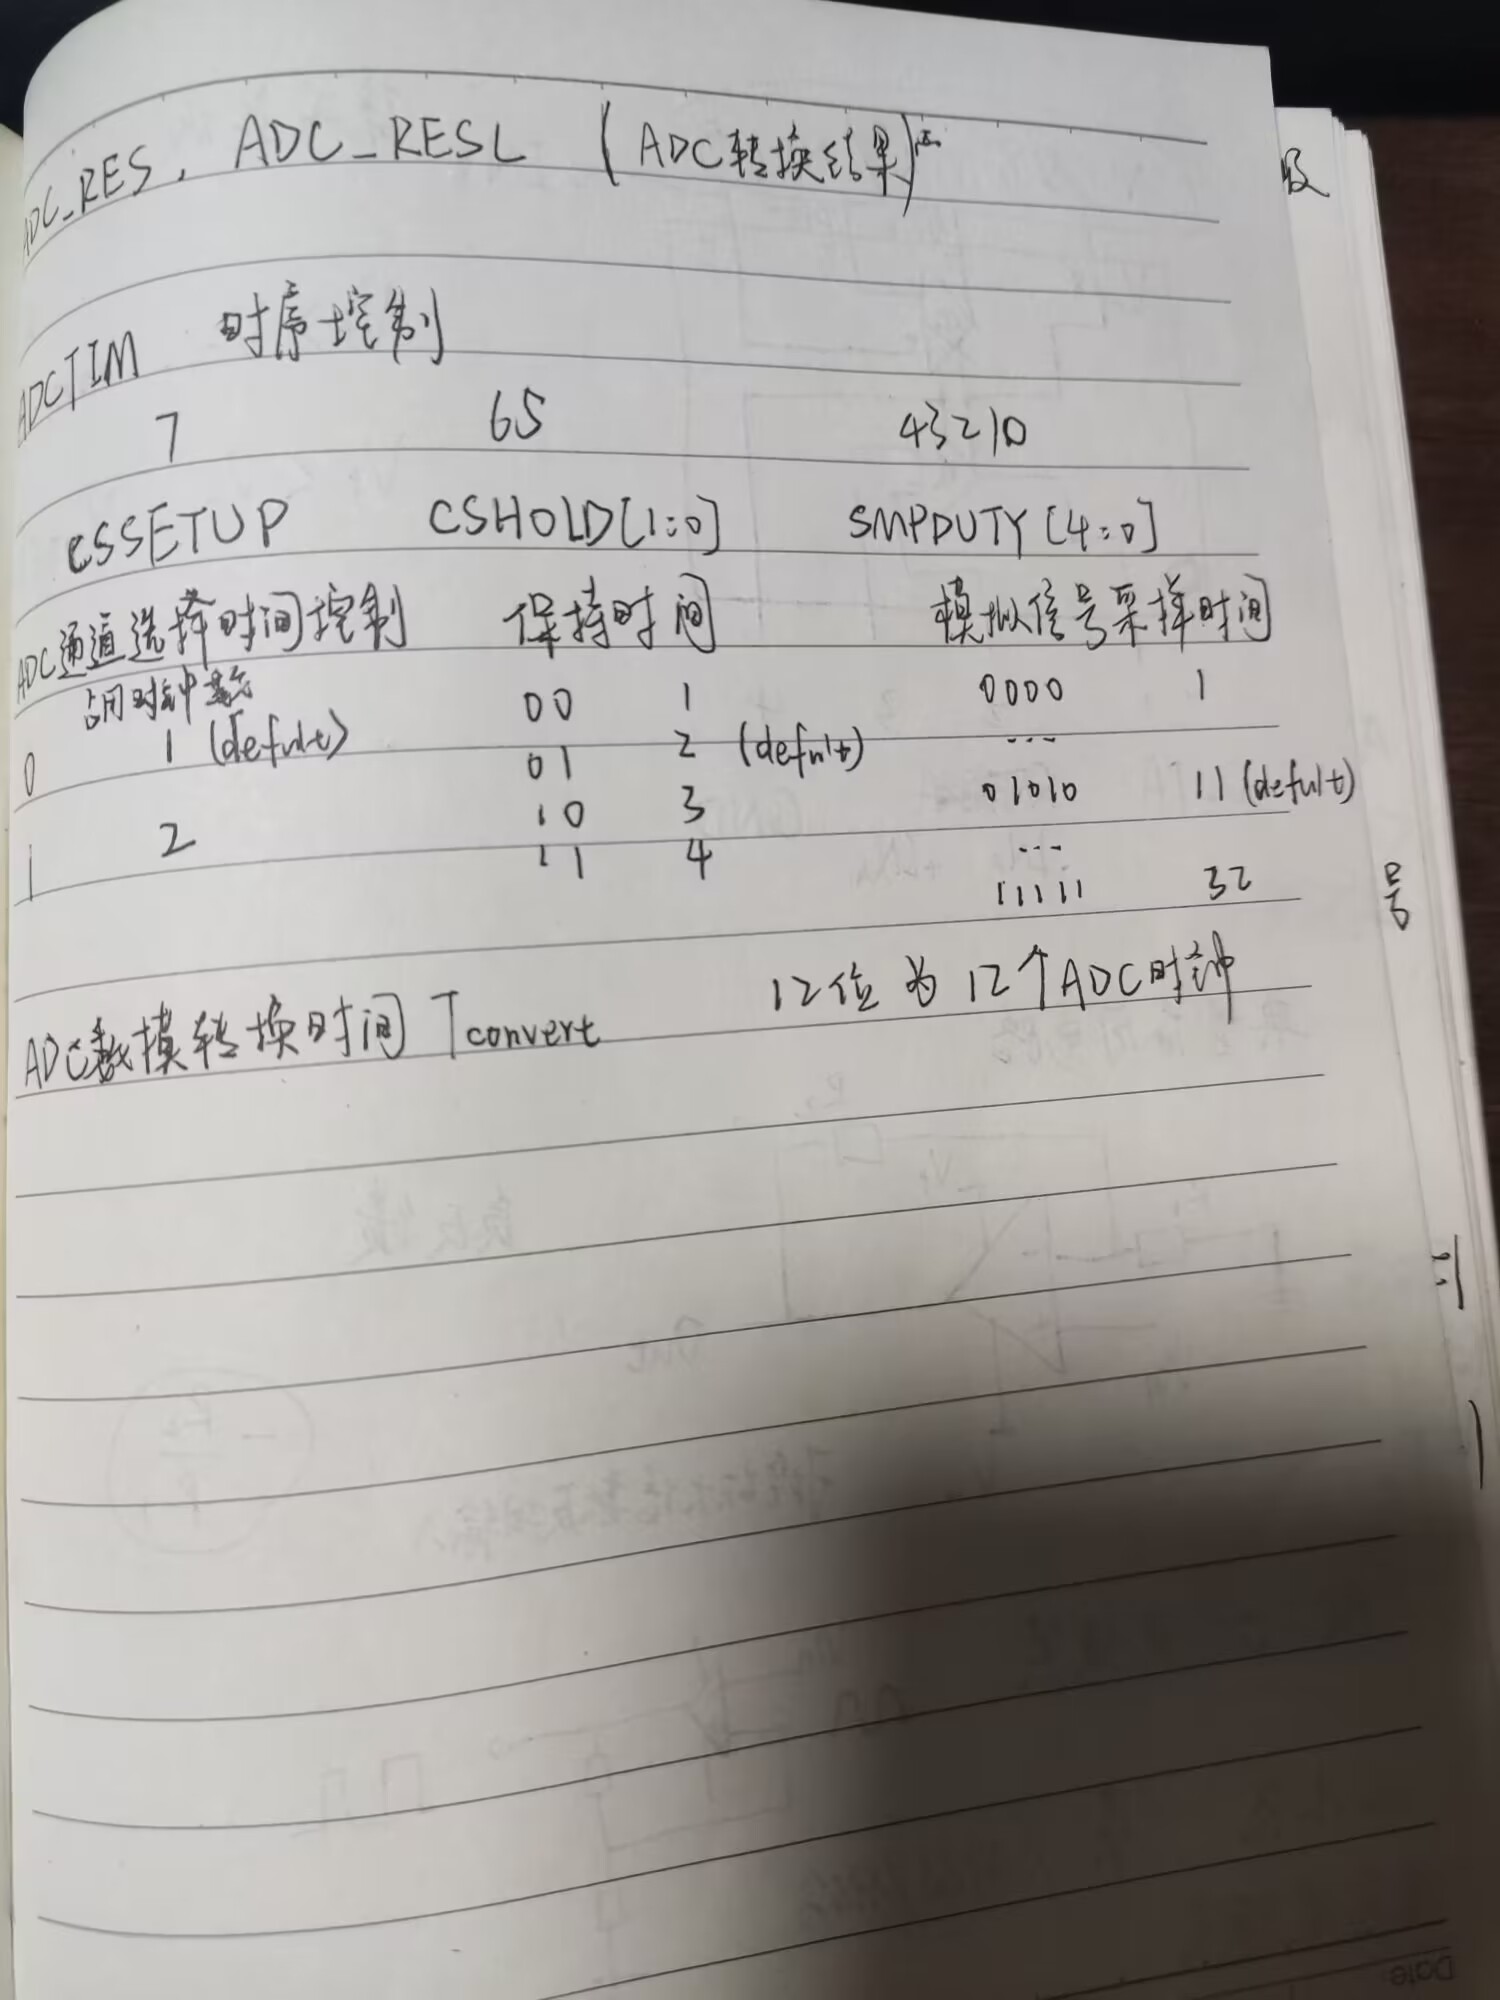 ADC_RES, ADC_RESL (ADC转换结果)
ADCTIM 时序控制
7 65 43210
CSSETUP CSHOLD[1:0] SMPDUTY[4:0]
ADC通道选择时间控制 保持时间 模拟信号采样时间
占用时钟数 00 1 0000 1
0 1 (defult) 01 2 (defult) ...
10 3 01010 11 (defult)
1 2 11 4 ...
11111 32
ADC数摸转换时间 Tconvert 12位为12个ADC时钟
号